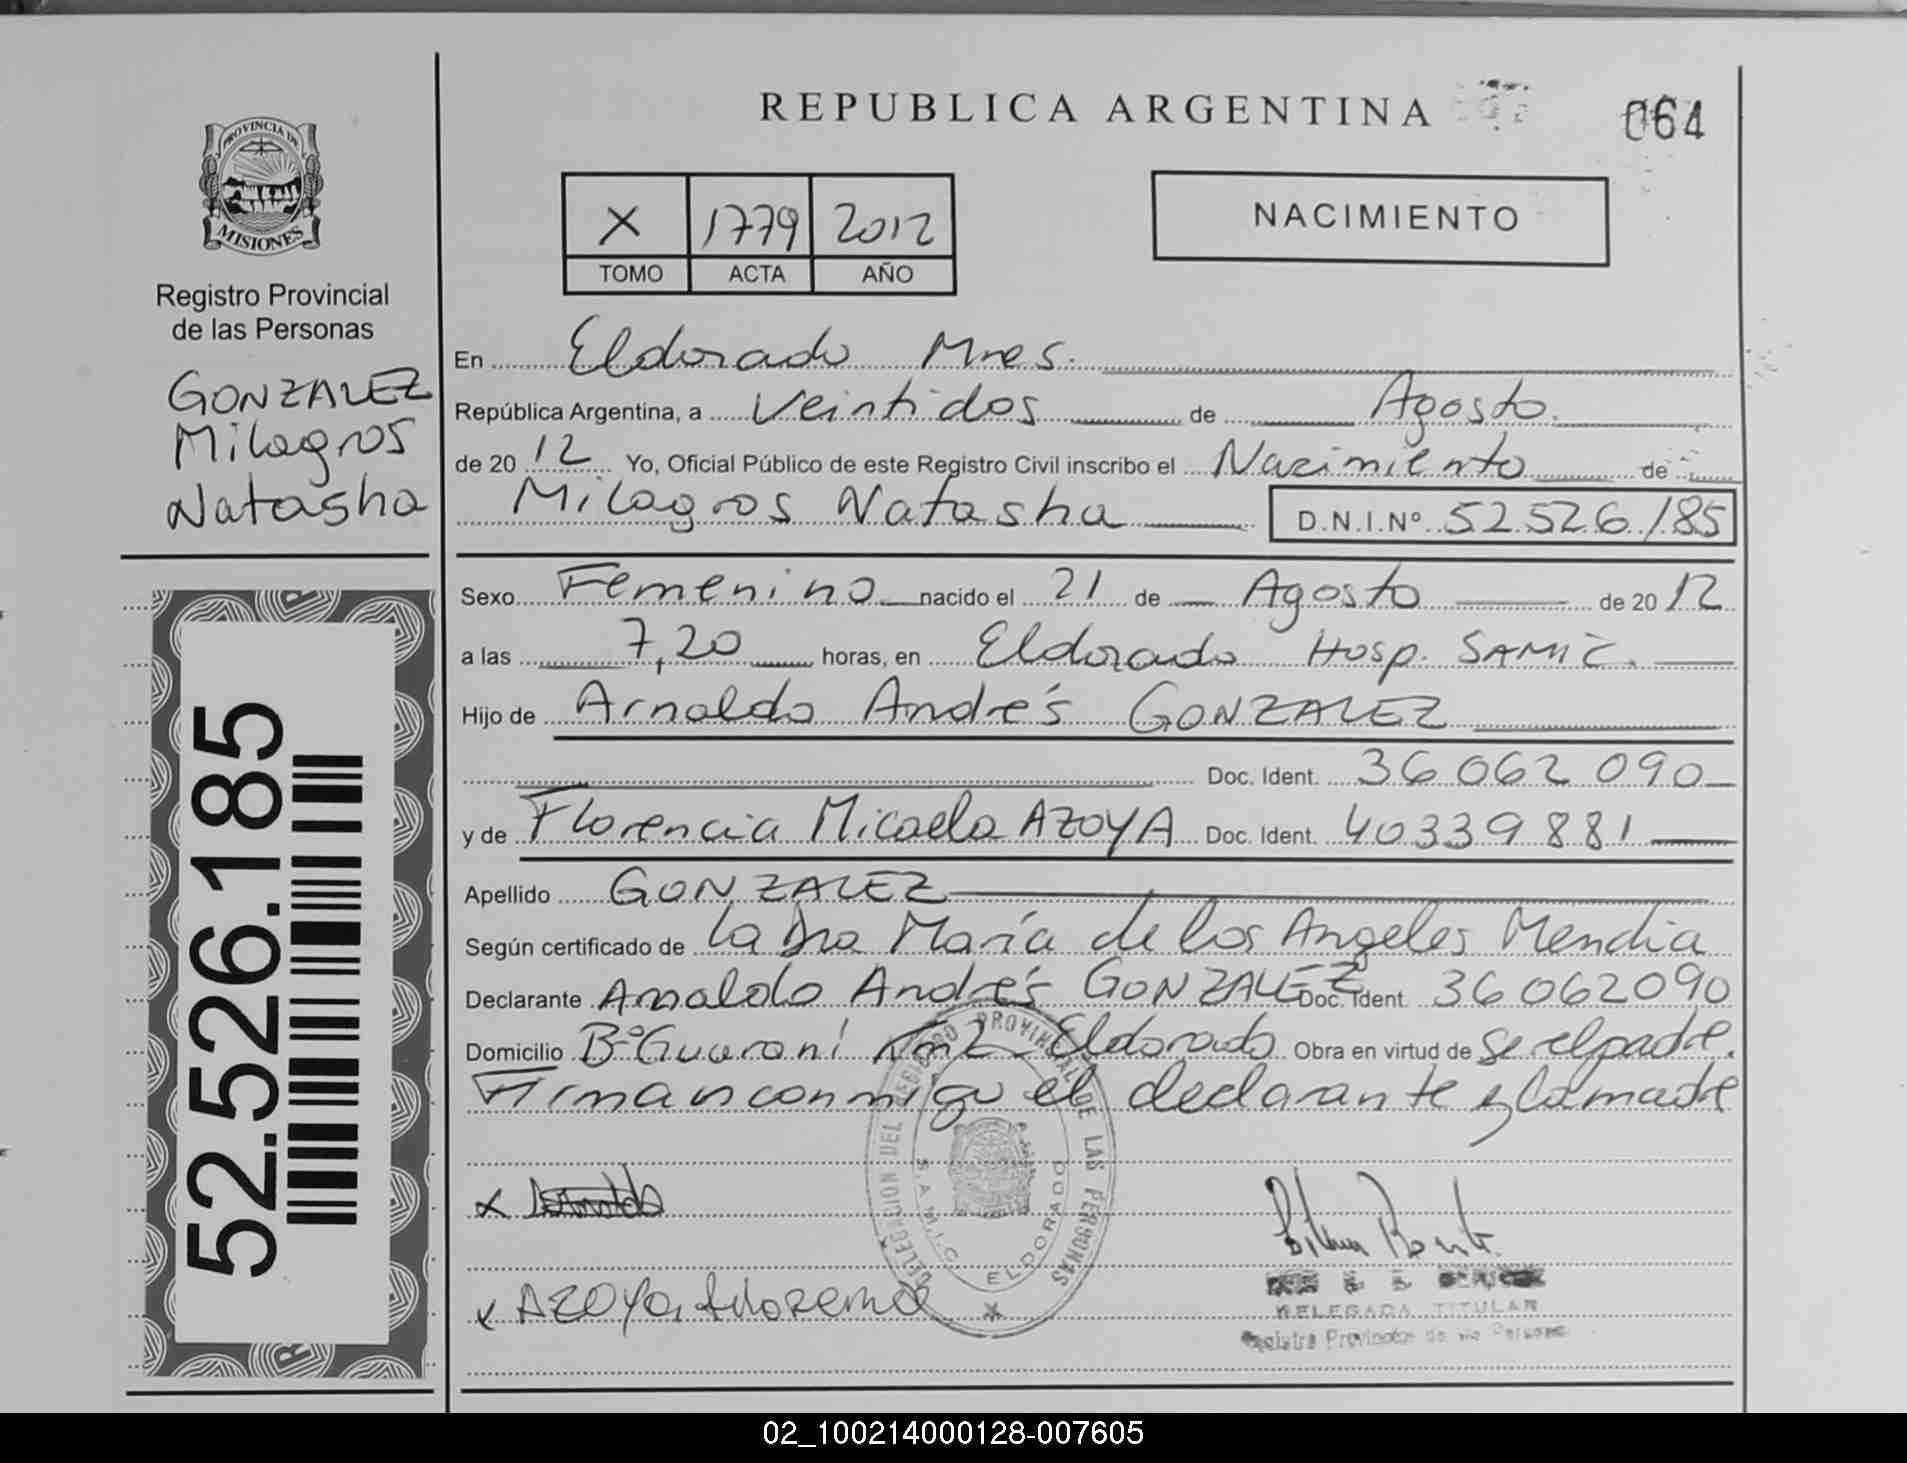 REPUBLICA ARGENTINA
064
PROVINCIA DE
MISIONES
Registro Provincial
de las Personas
GONZALEZ
Milagros
Natasha
52.526.185
X 1779 2012
TOMO ACTA AÑO
NACIMIENTO
En Eldorado Mnes.
República Argentina, a Veintidos de Agosto.
de 2012 Yo, Oficial Público de este Registro Civil inscribo el Nacimiento de
Milagros Natasha D.N.I.Nº 52.526.185
Sexo Femenino nacido el 21 de Agosto de 2012
a las 7,20 horas, en Eldorado Hosp. SAMIC.
Hijo de Arnaldo Andrés GONZALEZ
Doc. Ident. 36 062 090
y de Florencia Micaela AZOYA Doc. Ident. 40339881
Apellido GONZALEZ
Según certificado de la Dra María de los Angeles Mendia
Declarante Arnaldo Andrés GONZALEZ Doc. Ident. 36062090
Domicilio Bº Guaraní Km2 Eldorado Obra en virtud de ser el padre.
Firman conmigo el declarante y la madre
DELEGACION DEL REGISTRO PROVINCIAL DE LAS PERSONAS
S.A.M.I.C. ELDORADO
x
x AZOYA, florencia
DELEGADA TITULAR
Registro Provincial de las Personas
02_100214000128-007605